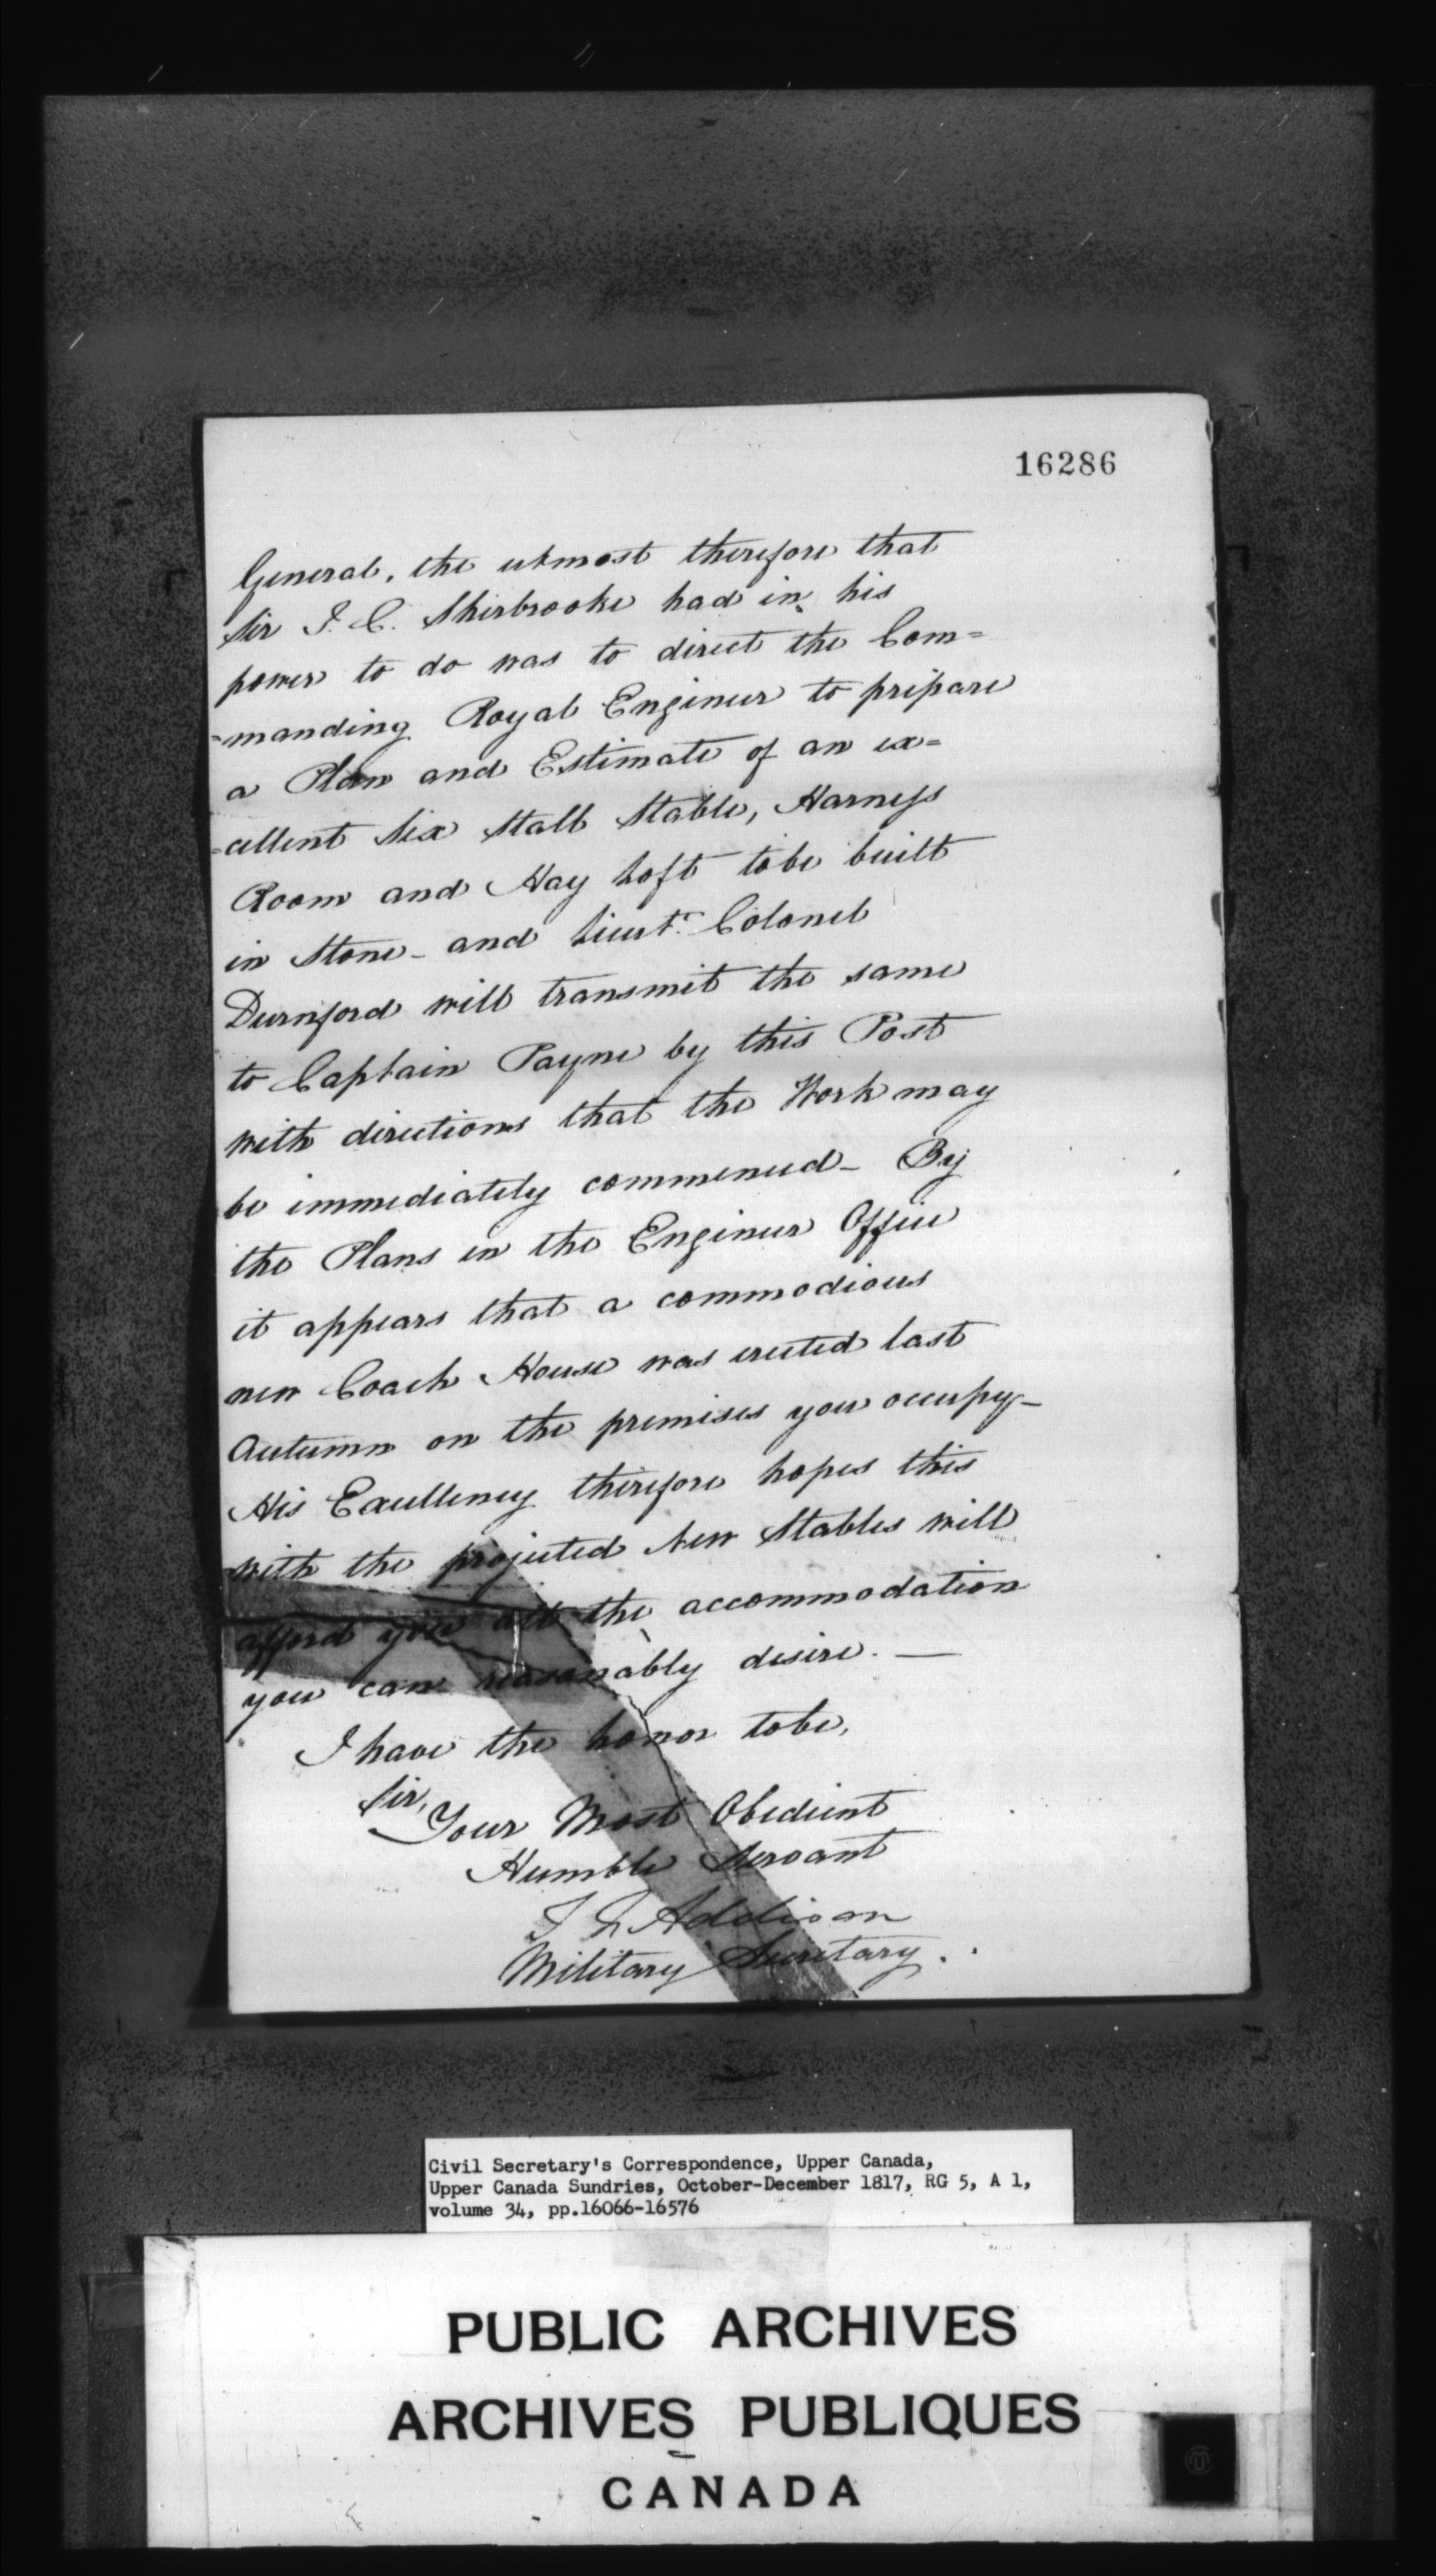 16286
General, the utmost therefore that
Sir J. C. Sherbrooke had in his
power to do was to direct the Com=
=manding Royal Engineer to prepare
a Plan and Estimate of an ex=
=cellent Six Stall Stable, Harness
Room and Hay Loft tobe built
in Stone - and Lieut. Colonel
Durnford will transmit the same
to Captain Payne by this Post
with directions that the Work may
be immediately commenced - By
the Plans in the Engineer Office
it appears that a commodious
new Coach House was erected last
Autumn on the premises you occupy -
His Excellency therefore hopes this
with the projected New Stables will
afford you all the accommodation
you can reasonably desire. —
I have the honor tobe,
Sir,
Your Most Obedient
Humble Servant
Addison
Military Secretary.
Civil Secretary's Correspondence, Upper Canada,
Upper Canada Sundries, October-December 1817, RG 5, A 1,
volume 34, pp.16066-16576
PUBLIC ARCHIVES
ARCHIVES PUBLIQUES
CANADA